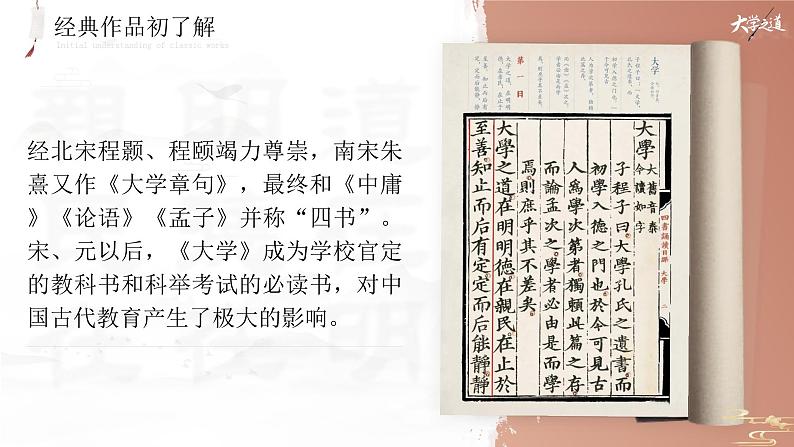 经典作品初了解
Initial understanding of classic works
大学之道
经北宋程颢、程颐竭力尊崇，南宋朱
熹又作《大学章句》，最终和《中庸
》《论语》《孟子》并称“四书”。
宋、元以后，《大学》成为学校官定
的教科书和科举考试的必读书，对中
国古代教育产生了极大的影响。
大学
第一日
大學
大舊音泰
今讀如字
子程子曰大學孔氏之遺書而
初學入德之門也於今可見古
人為學次第者獨賴此篇之存
而論孟次之學者必由是而學
焉則庶乎其不差矣
大學之道在明明德在親民在止於
至善知止而后有定定而后能靜靜
四書誦讀日課
大學
二